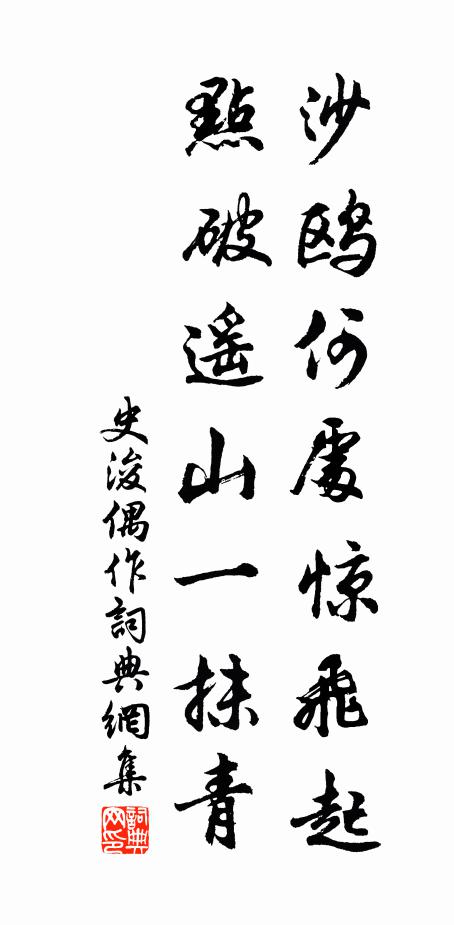 沙鸥何處惊飛起
點破遥山一抹青
史浚偶作詞典網集
詞典网印